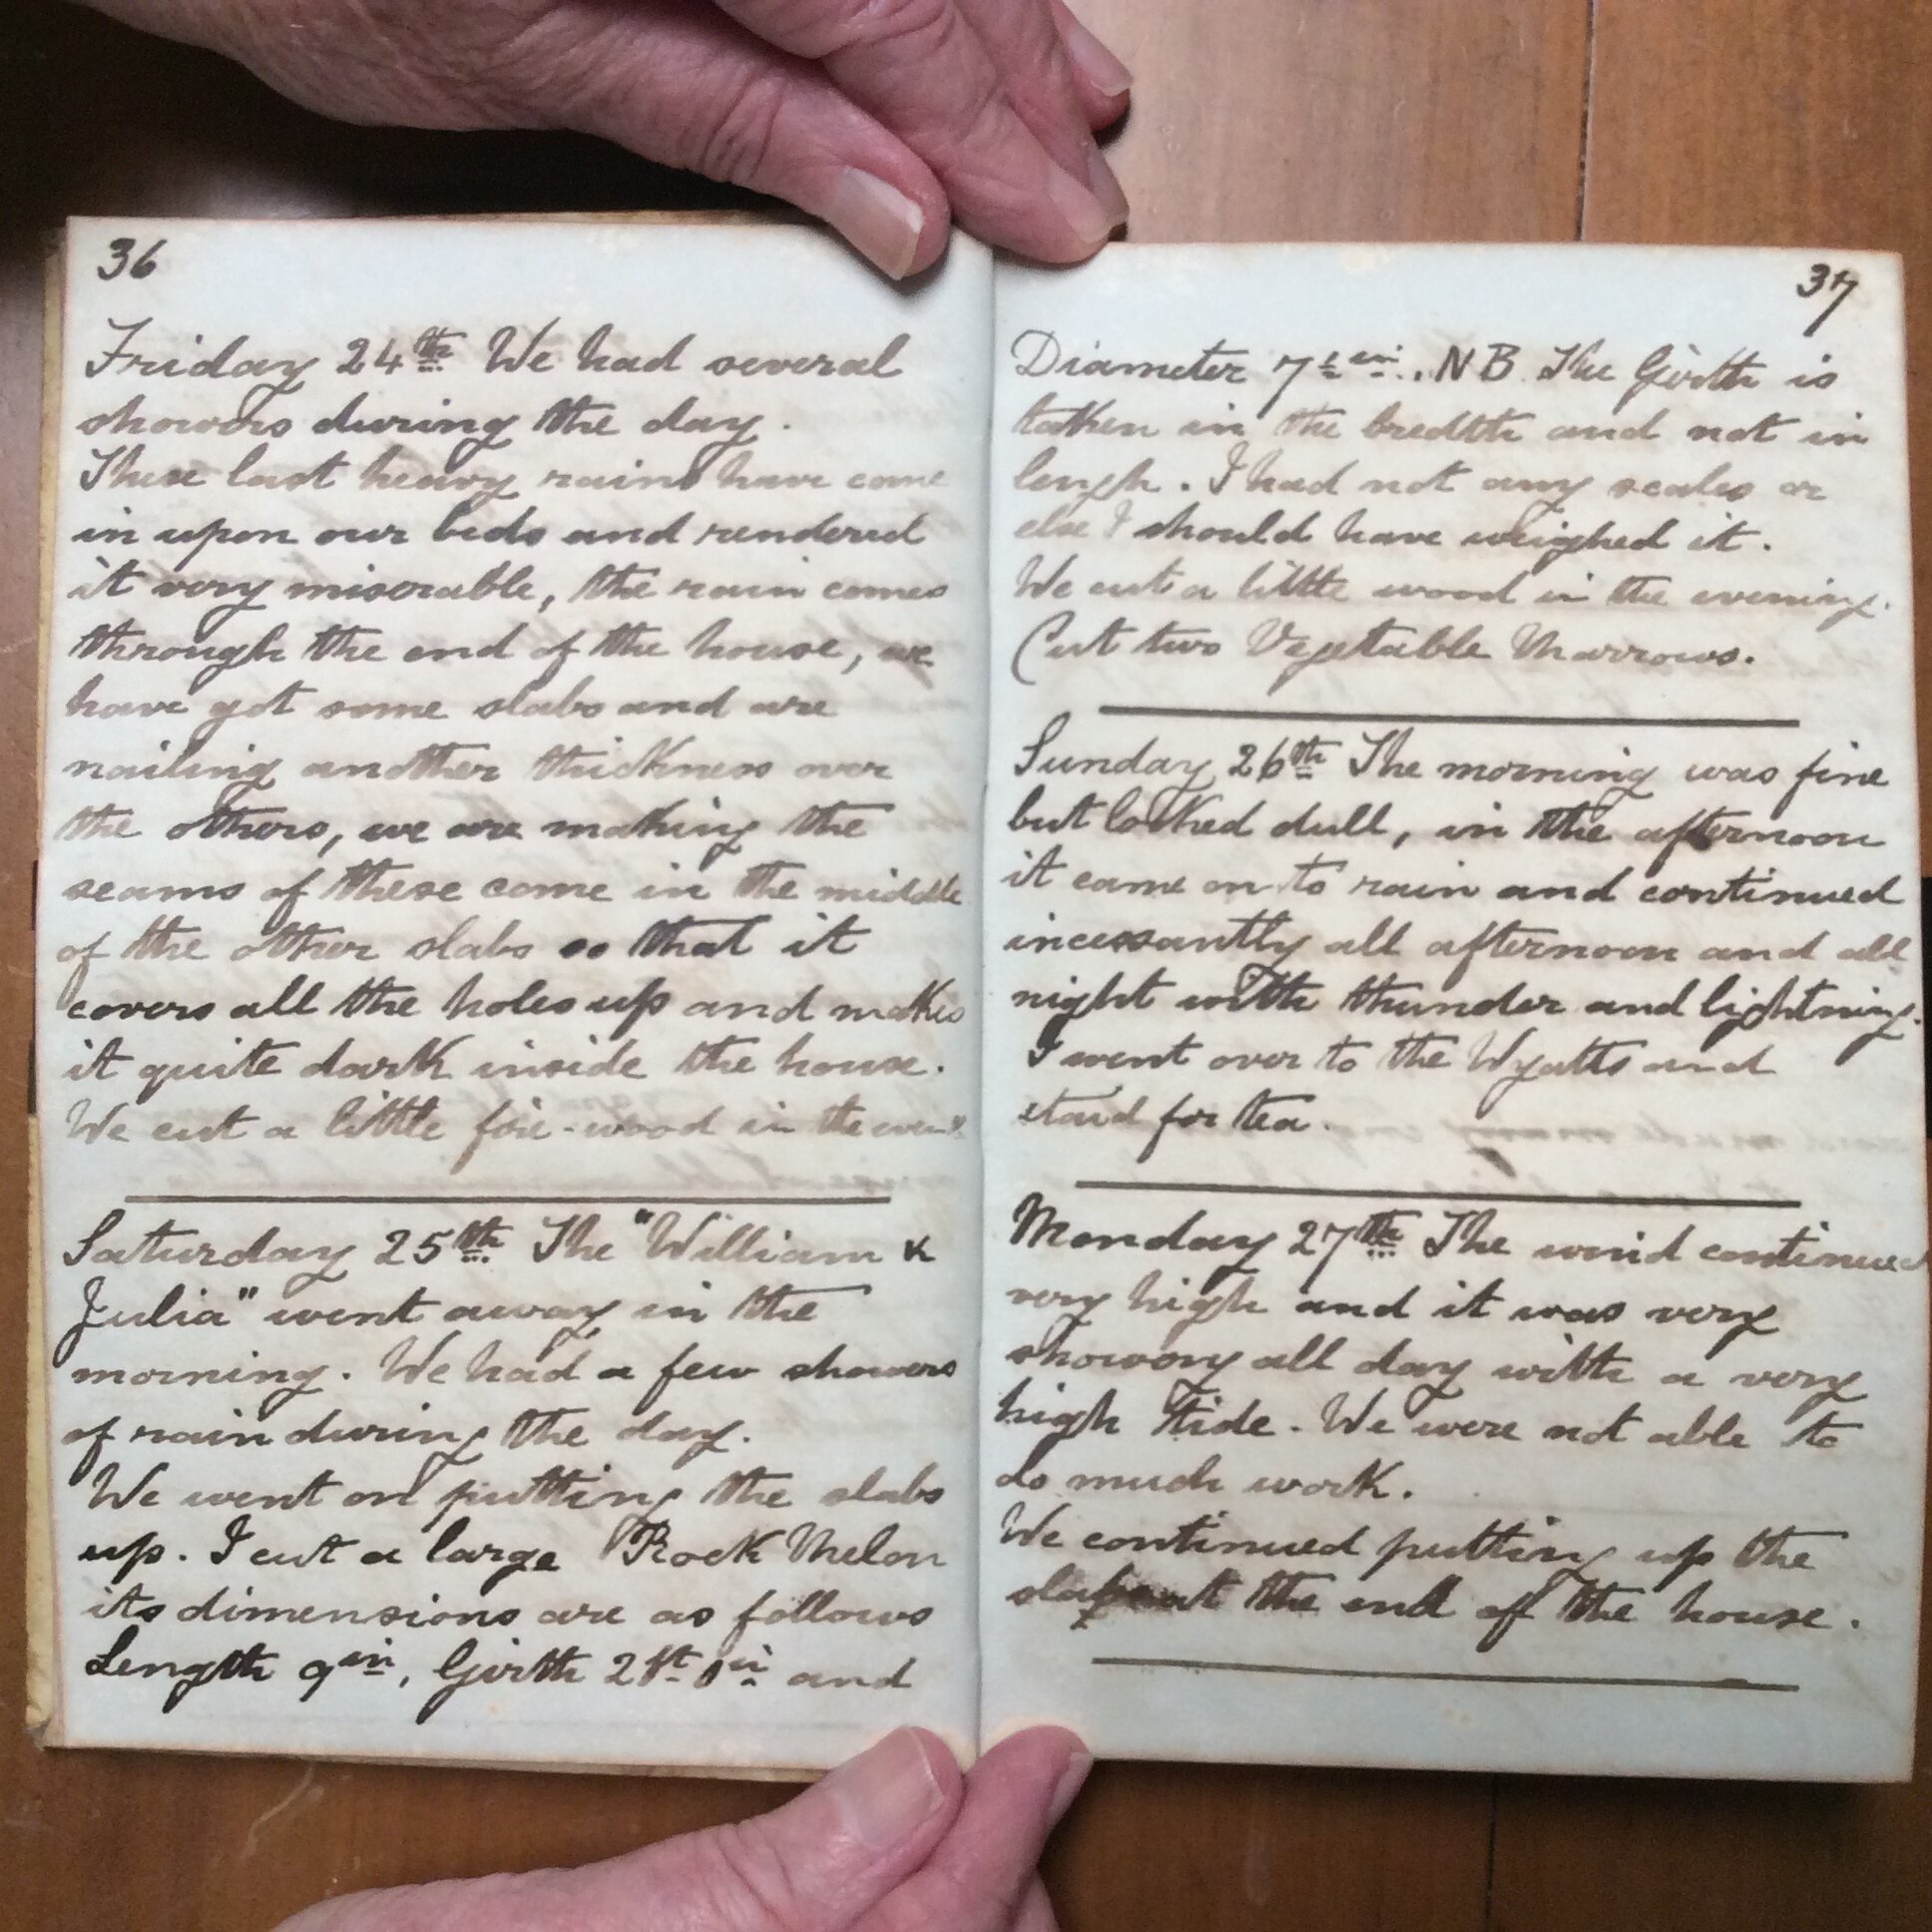 36
Friday 24th We had several
showers during the day.
These last heavy rains have come
in upon our beds and rendered
it very miserable, the rain comes
through the end of the house, we
have got some slabs and are
nailing another thickness over
the others, we are making the
seams of these come in the middle
of the other slabs so that it
covers all the holes up and makes
it quite dark inside the house.
We cut a little fire-wood in the
Saturday 25th The "William &
Julia" went away in the
morning. We had a few showers
of rain during the day.
We went on putting the slabs
up. I cut a large Rock Melon
its dimensions are as follows
Length 9in, Girth 2ft 0in and
37
Diameter 7 in. NB The Girth is
taken in the bredth and not in
lengh. I had not any scales or
else I should have weighed it.
We cut a little wood in the evening.
Cut two Vegetable Marrows.
Sunday 26th The morning was fine
but looked dull, in the afternoon
it came on to rain and continued
incessantly all afternoon and all
night with thunder and lightning.
I went over to the Wyatts and
staid for tea.
Monday 27th The wind continued
very high and it was very
showery all day with a very
high tide. We were not able to
do much work.
We continued putting up the
slabs at the end of the house.